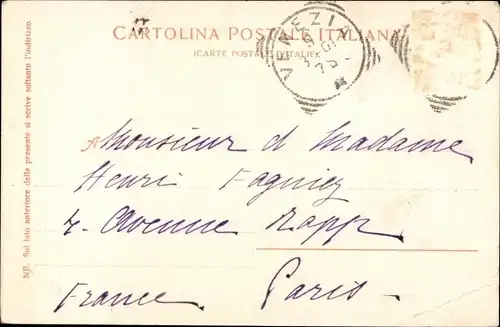 CARTOLINA POSTALE ITALIANA
(CARTE POSTALE D'ITALIE)
VENEZIA
NB. Sul lato anteriore della presente si scrive soltanto l'indirizzo.
A Monsieur & Madame
Henri Fagniez
Avenue Rapp
Paris
France